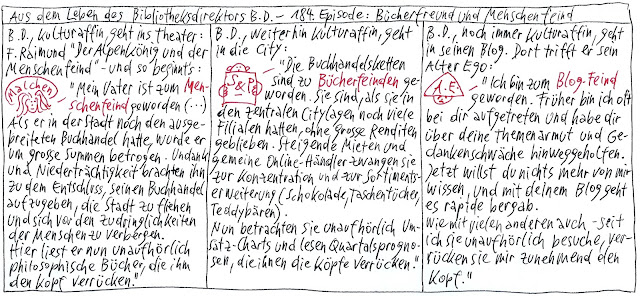 Aus dem Leben des Bibliotheksdirektors B.D. – 184. Episode: Bücherfreund und Menschenfeind
B.D., kulturaffin, geht ins Theater:
F. Raimund "Der Alpenkönig und der
Menschenfeind" – und so beginnt's:
Malchen
"Mein Vater ist zum Men-
schenfeind geworden (...)
Als er in der Stadt noch den ausge-
breiteten Buchhandel hatte, wurde er
um grosse Summen betrogen. Undank
und Niederträchtigkeit brachten ihn
zu dem Entschluss, seinen Buchhandel
aufzugeben, die Stadt zu fliehen
und sich vor den Zudringlichkeiten
der Menschen zu verbergen.
Hier liest er nun unaufhörlich
philosophische Bücher, die ihm
den Kopf verrücken."
B.D., weiterhin kulturaffin, geht
in die City:
"Die Buchhandelsketten
sind zu Bücherfeinden ge-
worden. Sie sind, als sie in
den zentralen Citylagen noch viele
Filialen hatten, ohne grosse Renditen
geblieben. Steigende Mieten und
gemeine Online-Händler zwangen sie
zur Konzentration und zur Sortiments-
erweiterung (Schokolade, Taschentücher,
Teddybären).
Nun betrachten sie unaufhörlich Um-
satz-Charts und lesen Quartalsprogno-
sen, die ihnen die Köpfe verrücken."
B.D., noch immer kulturaffin, geht
in seinen Blog. Dort trifft er sein
Alter Ego:
A.E.
"Ich bin zum Blog-Feind
geworden. Früher bin ich oft
bei dir aufgetreten und habe dir
über deine Themenarmut und Ge-
dankenschwäche hinweggeholfen.
Jetzt willst du nichts mehr von mir
wissen, und mit deinem Blog geht
es rapide bergab.
Wie mit vielen anderen auch – seit
ich sie unaufhörlich besuche, ver-
rücken sie mir zunehmend den
Kopf."